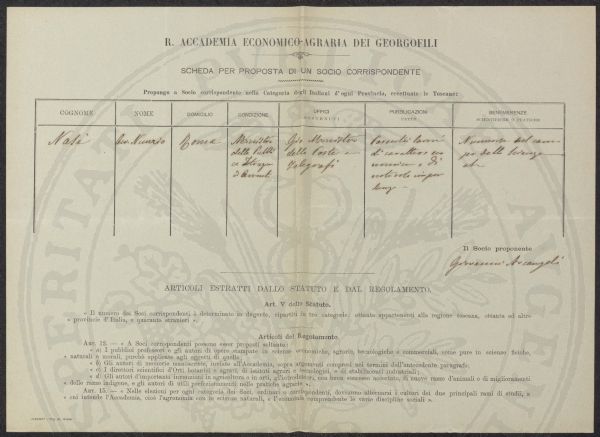 R. ACCADEMIA ECONOMICO-AGRARIA DEI GEORGOFILI
SCHEDA PER PROPOSTA DI UN SOCIO CORRISPONDENTE
Propongo a Socio corrispondente nella Categoria degli Italiani d'ogni Provincia, eccettuate le Toscane:
COGNOME NOME DOMICILIO CONDIZIONE UFFICI PUBBLICAZIONI BENEMERENZE
SCIENTIFICHE O PRATICHE
Nasi Nunzio Roma Ministro Già Ministro
della Pubblica delle Poste e di carattere
Telegrafi
Il Socio proponente
Giovanni Arcangeli
ARTICOLI ESTRATTI DALLO STATUTO E DAL REGOLAMENTO.
Art. V dello Statuto.
« Il numero dei Soci corrispondenti è determinato in dugento, ripartiti in tre categorie: ottanta appartenenti alla regione toscana, ottanta ad altre
« provincie d'Italia, e quaranta stranieri ».
Articoli del Regolamento.
ART. 12. — « A Soci corrispondenti possono esser proposti soltanto:
« a) I pubblici professori e gli autori di opere stampate in scienze economiche, agrarie, tecnologiche e commerciali, come pure in scienze fisiche,
« naturali e morali, purchè applicate agli oggetti di quelle.
« b) Gli autori di memorie manoscritte, inviate all'Accademia, sopra argomenti compresi nei termini dell'antecedente paragrafo.
« c) I direttori scientifici d'Orti botanici e agrari, di aziende agrarie e tecnologiche, e di stabilimenti industriali;
« d) Gli autori d'importanti innovazioni in agricoltura o in arti, gl'introduttori, con buon successo accertato, di nuove razze d'animali o di miglioramenti
« delle razze indigene, e gli autori di utili perfezionamenti nelle pratiche agrarie ».
ART. 15. — « Nelle elezioni per ogni categoria dei Soci, ordinari o corrispondenti, dovranno alternarsi i cultori dei due principali rami di studii, a
« cui intende l'Accademia, cioè l'agronomia con le scienze naturali, e l'economia comprendente le varie discipline sociali ».